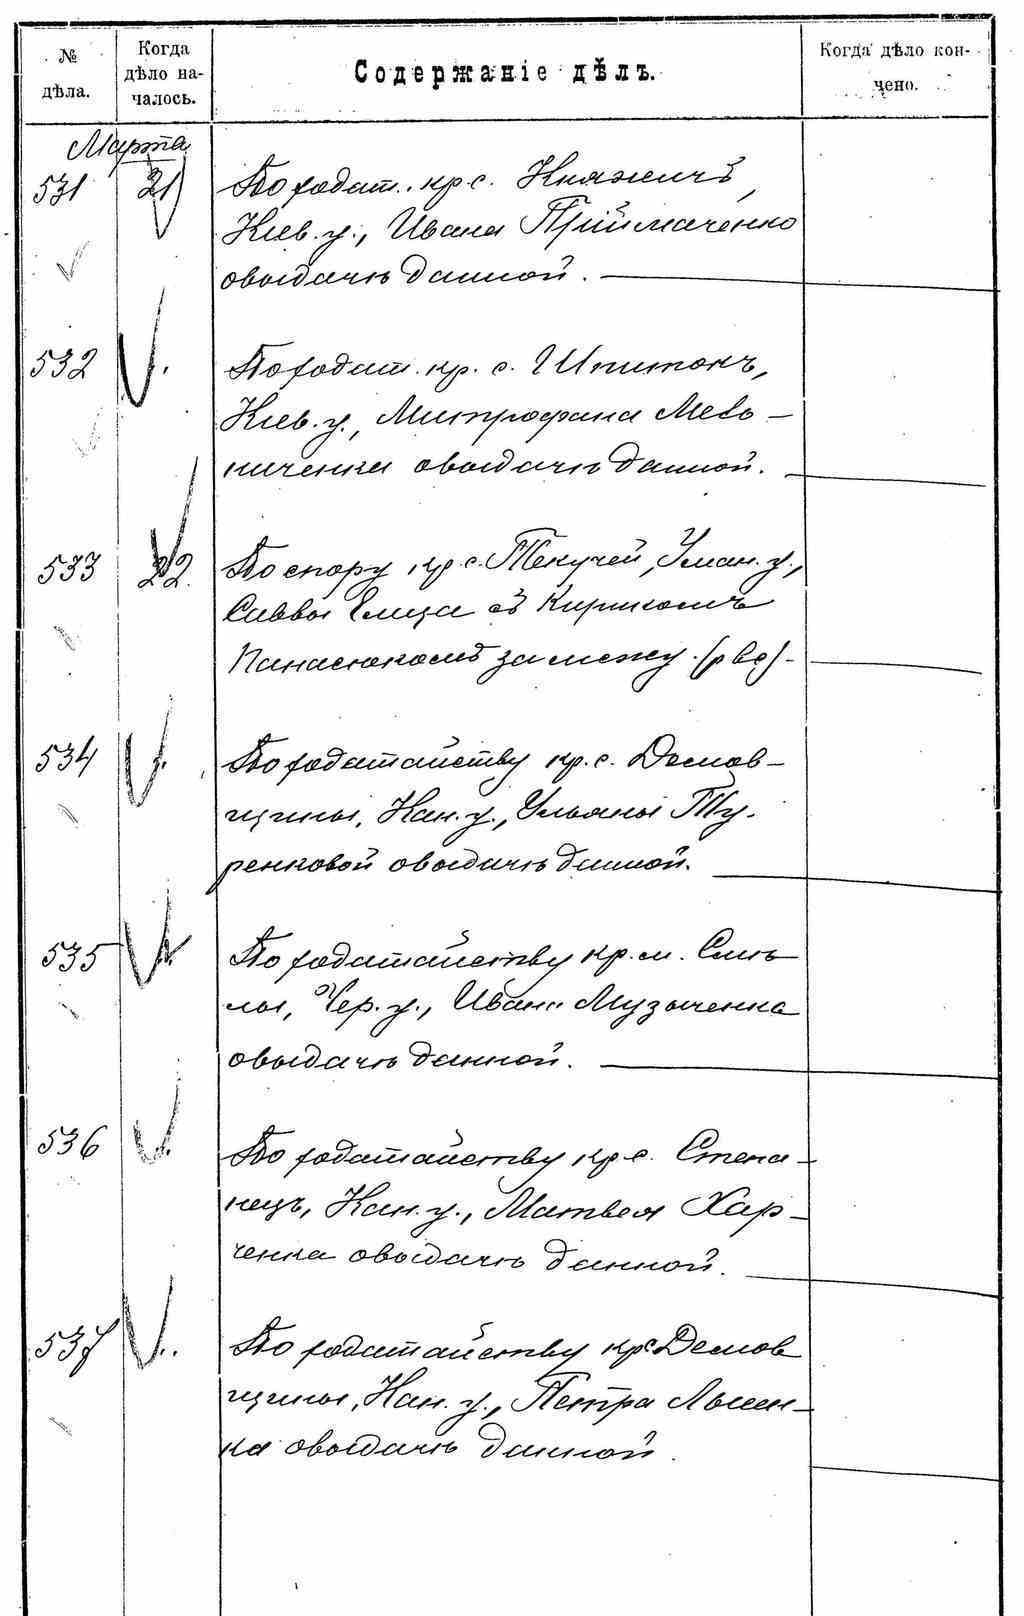 № дѣла.
Когда дѣло на-
чалось.
Содержаніе дѣлъ.
Когда дѣло кон-
чено.
Марта
531 21 По ходат. кр. с. Княжичъ,
Кіев. у., Ивана Прiймаченко
о выдачѣ данной.
532 По ходат. кр. с. Шпитокъ,
Кіев. у., Митрофана Мель-
ниченка о выдачѣ данной.
533 22. По спору кр. с. Текучей, Уман. у.,
Саввы с Кирикомъ
Панасюкомъ за межу.
534 По ходатайству кр. с. Демов-
щины, Кан. у., Ульяны Ту-
ренковой о выдачѣ данной.
535 По ходатайству кр. м. Смѣ
лы, Чер. у., Ивана Музыченка
о выдачѣ данной.
536 По ходатайству кр. с. Степа-
нецъ, Кан. у., Матвея Хар-
ченка о выдачѣ данной.
537 По ходатайству кр с Демов
щины, Кан. у., Петра Лысен-
ка о выдачѣ данной.